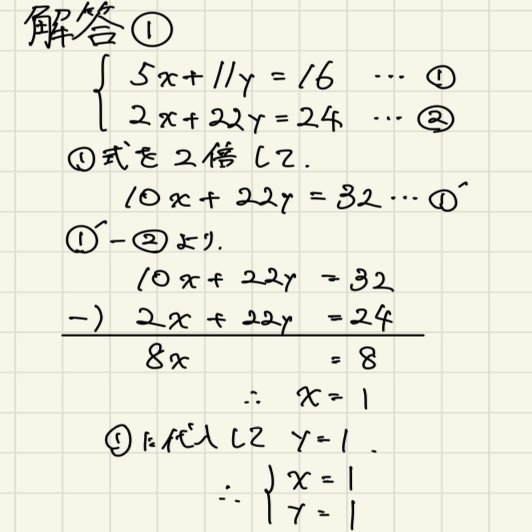 解答①
5x+11y=16 … ①
2x+22y=24 … ②
①式を2倍して.
10x+22y=32 … ①´
①´-②より.
10x+22y=32
-) 2x+22y=24
8x =8
∴ x=1
①に代入して y=1.
∴ { x=1
y=1